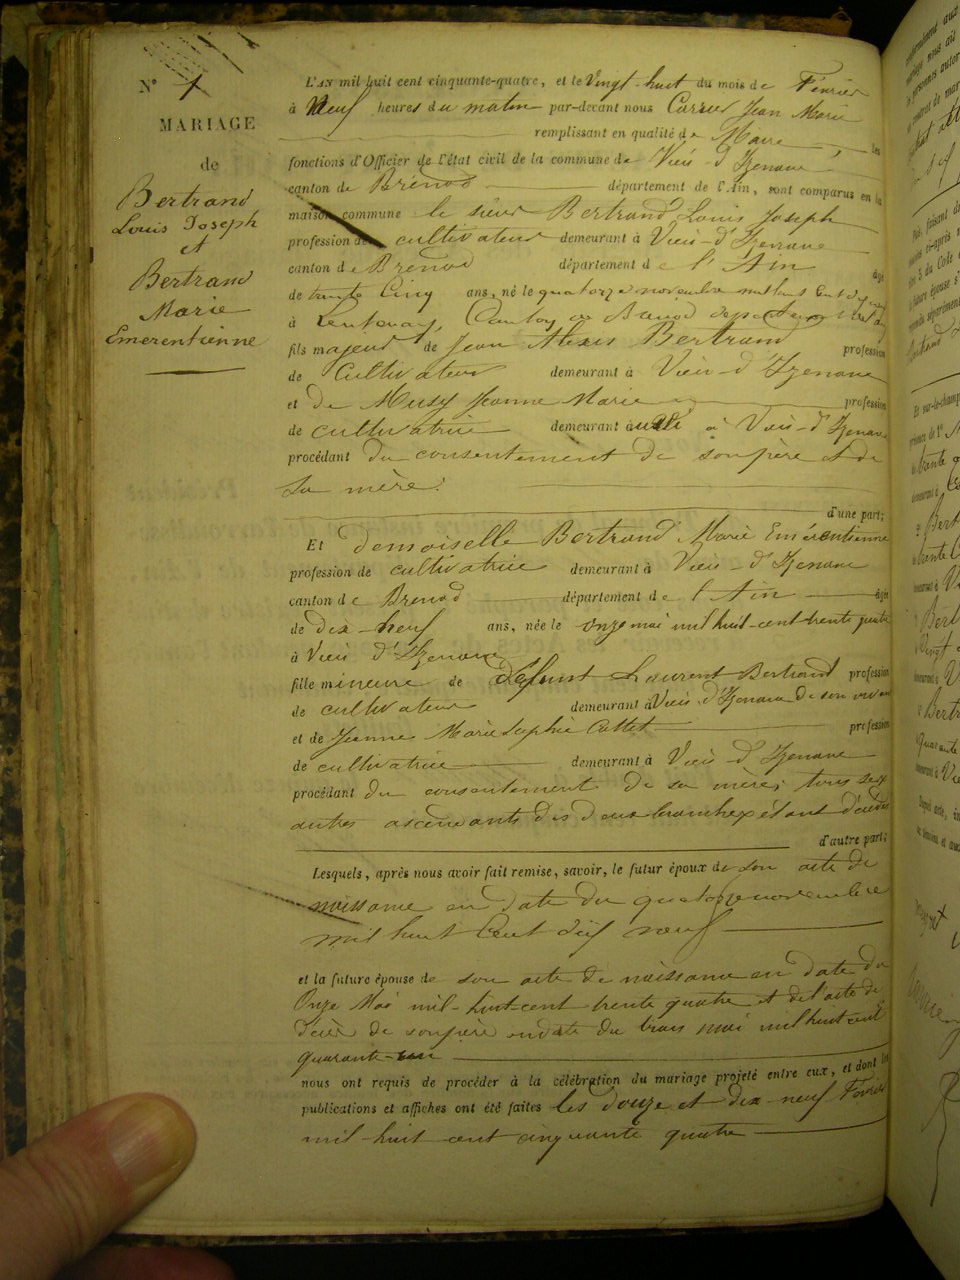 N° 1
MARIAGE
de
Bertrand
Louis Joseph
et
Bertrand
Marie
Emerentienne
L'AN mil huit cent cinquante-quatre, et le Vingt-huit du mois de Février
à Neuf heures du matin par-devant nous Carrier Jean Marie
remplissant en qualité de Maire les
fonctions d'Officier de l'état civil de la commune de Vieu-d'Izenave
canton de Brénod département de l'Ain, sont comparus en la
maison commune le sieur Bertrand Louis Joseph
profession de cultivateur demeurant à Vieu-d'Izenave
canton de Brénod département de l'Ain âgé
de trente Cinq ans, né le quatorze novembre mil huit Cent dix neuf
à Lentenay, Canton de Brenod département de l'ain
fils majeur de Jean Alexis Bertrand profession
de Cultivateur demeurant à Vieu-d'Izenave
et de Musy Jeanne Marie profession
de cultivatrice demeurant à Vieu-d'Izenave
procédant du consentement de son père et de
sa mère.
d'une part;
Et demoiselle Bertrand Marie Emérentienne
profession de cultivatrice demeurant à Vieu-d'Izenave
canton de Brenod département de l'Ain âgée
de dix-neuf ans, née le onze mai mil huit-cent-trente quatre
à Vieu d'Izenave
fille mineure de défunt Laurent Bertrand profession
de cultivateur demeurant à Vieu d'Izenave de son vivant
et de Jeanne Marie Sophie Cottet profession
de cultivatrice demeurant à Vieu d'Izenave
procédant du consentement de sa mère, tous ses
autres ascendants des deux branches étant décédés
d'autre part;
Lesquels, après nous avoir fait remise, savoir, le futur époux de son acte de
naissance en date du quatorze novembre
mil huit Cent dix neuf
et la future épouse de son acte de naissance en date du
Onze Mai mil-huit-cent trente quatre et de l'acte de
décès de son père en date du trois mai mil huit cent
quarante-un
nous ont requis de procéder à la célébration du mariage projeté entre eux, et dont les
publications et affiches ont été faites les douze et dix-neuf Février
mil-huit cent cinquante quatre